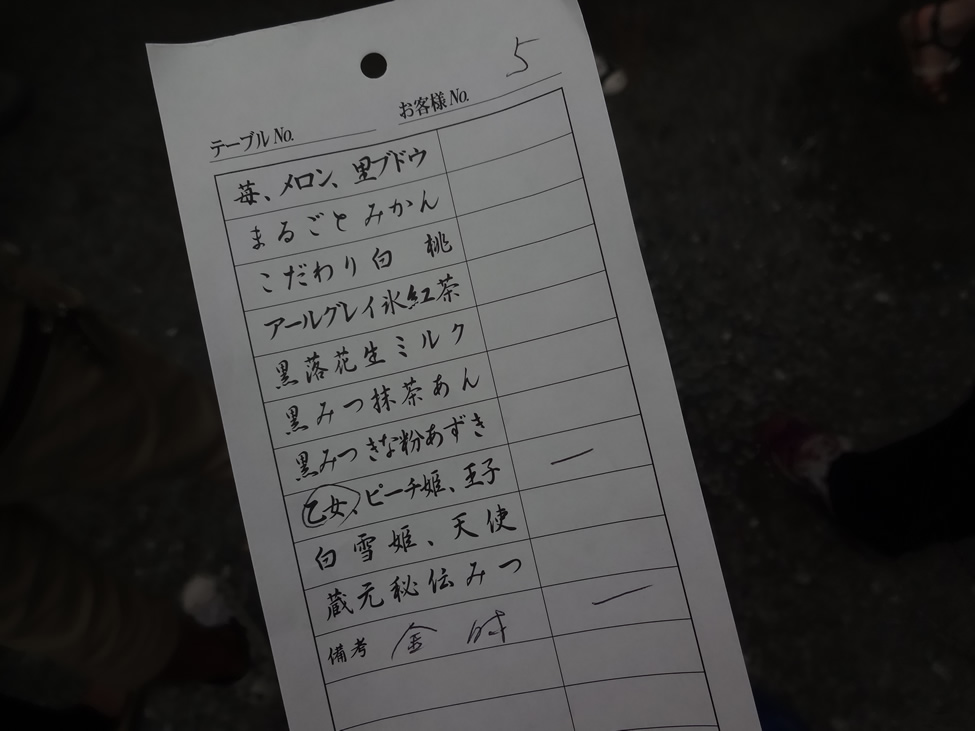 5
テーブルNo. お客様No.
苺、メロン、黒ブドウ
まるごとみかん
こだわり白 桃
アールグレイ氷紅茶
黒落花生ミルク
黒みつ抹茶あん
黒みつきな粉あずき
乙女、ピーチ姫、王子 一
白雪姫、天使
蔵元秘伝みつ
備考 金 時 一